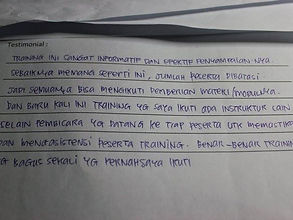 Testimonial :
TRAINING INI SANGAT INFORMATIF DAN EFEKTIF PENYAMPAIAN NYA.
SEBAIKNYA MEMANG SEPERTI INI, JUMLAH PESERTA DIBATASI
JADI SEMUANYA BISA MENGIKUTI PEMBERIAN MATERI/MODULNYA.
DAN BARU KALI INI TRAINING YG SAYA IKUTI ADA INSTRUKTUR LAIN
SELAIN PEMBICARA YG DATANG KE TIAP PESERTA UTK MEMASTIKA
DAN MENGASISTENSI PESERTA TRAINING. BENAR-BENAR TRAININ
YG BAGUS SEKALI YG PERNAH SAYA IKUTI